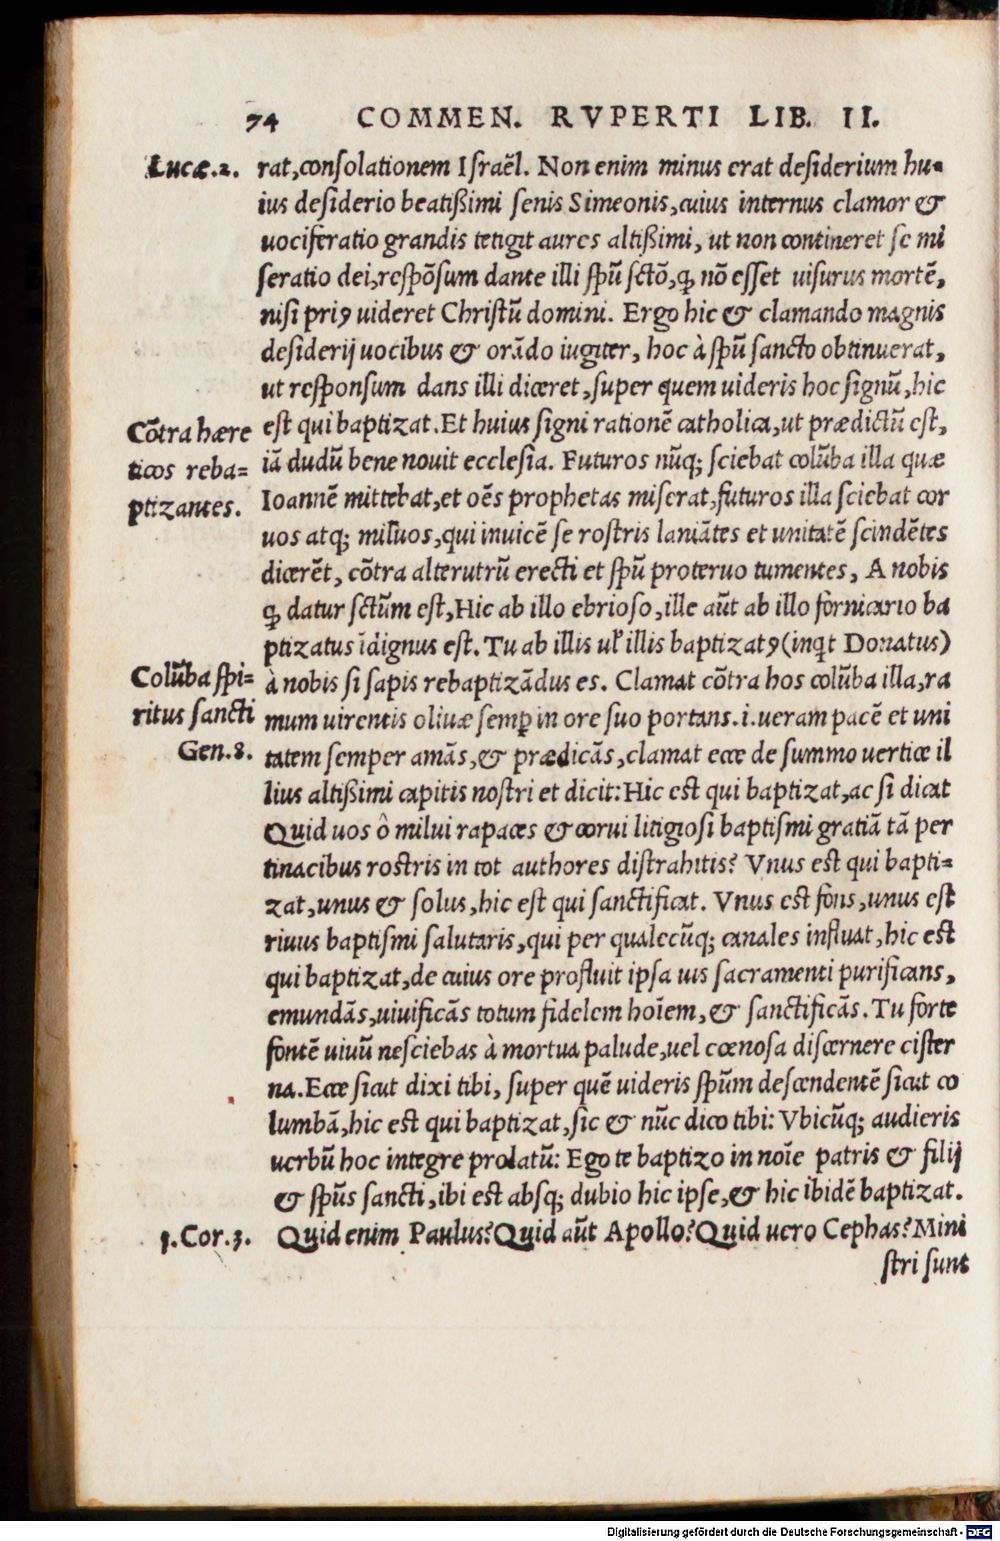 74 COMMEN. RVPERTI LIB. II.
Lucæ.2.
rat,conſolationem Iſraël. Non enim minus erat deſiderium hu-
ius deſiderio beatißimi ſenis Simeonis,cuius internus clamor &
uociferatio grandis tetigit aures altißimi, ut non contineret ſe mi
ſeratio dei,reſpõſum dante illi ſpũ ſctõ,ꝙ nõ eſſet uiſurus mortẽ,
niſi priꝰ uideret Chriſtũ domini. Ergo hic & clamando magnis
deſiderij uocibus & orãdo iugiter, hoc à ſpũ ſancto obtinuerat,
ut reſponſum dans illi diceret,ſuper quem uideris hoc ſignũ,hic
Cõtra hære
ticos reba=
ptizantes.
eſt qui baptizat.Et huius ſigni rationẽ catholica,ut prædictũ eſt,
iã dudũ bene nouit eccleſia. Futuros nũq; ſciebat colũba illa quæ
Ioannẽ mittebat,et oẽs prophetas miſerat,futuros illa ſciebat cor
uos atq; miluos,qui inuicẽ ſe roſtris laniãtes et unitatẽ ſcindẽtes
dicerẽt, cõtra alterutrũ erecti et ſpũ proteruo tumentes, A nobis
ꝙ datur ſctũm eſt,Hic ab illo ebrioſo,ille aũt ab illo fornicario ba
ptizatus ĩdignus eſt. Tu ab illis ul' illis baptizatꝰ(inqt Donatus)
Colũba ſpi=
ritus ſancti
Gen.8.
à nobis ſi ſapis rebaptizãdus es. Clamat cõtra hos colũba illa,ra
mum uirentis oliuæ ſemꝑ in ore ſuo portans.i.ueram pacẽ et uni
tatem ſemper amãs,& prædicãs,clamat ecce de ſummo uertice il
lius altißimi capitis noſtri et dicit:Hic eſt qui baptizat,ac ſi dicat
Quid uos ô milui rapaces & corui litigioſi baptiſmi gratiã tã per
tinacibus roſtris in tot authores diſtrahitis? Vnus eſt qui bapti=
zat,unus & ſolus,hic eſt qui ſanctificat. Vnus eſt fons,unus eſt
riuus baptiſmi ſalutaris,qui per qualecũq; canales influat,hic eſt
qui baptizat,de cuius ore profluit ipſa uis ſacramenti purificans,
emundãs,uiuificãs totum fidelem hoĩem,& ſanctificãs.Tu forte
fontẽ uiuũ neſciebas à mortua palude,uel cœnoſa diſcernere ciſter
na.Ecce ſicut dixi tibi, ſuper quẽ uideris ſpũm deſcendentẽ ſicut co
lumbã,hic eſt qui baptizat,ſic & nũc dico tibi: Vbicũq; audieris
uerbũ hoc integre prolatũ: Ego te baptizo in noĩe patris & filij
& ſpũs ſancti,ibi eſt abſq; dubio hic ipſe,& hic ibidẽ baptizat.
1.Cor.3.
Quid enim Paulus?Quid aũt Apollo?Quid uero Cephas?Mini
ſtri ſunt
Digitalisierung gefördert durch die Deutsche Forschungsgemeinschaft - DFG